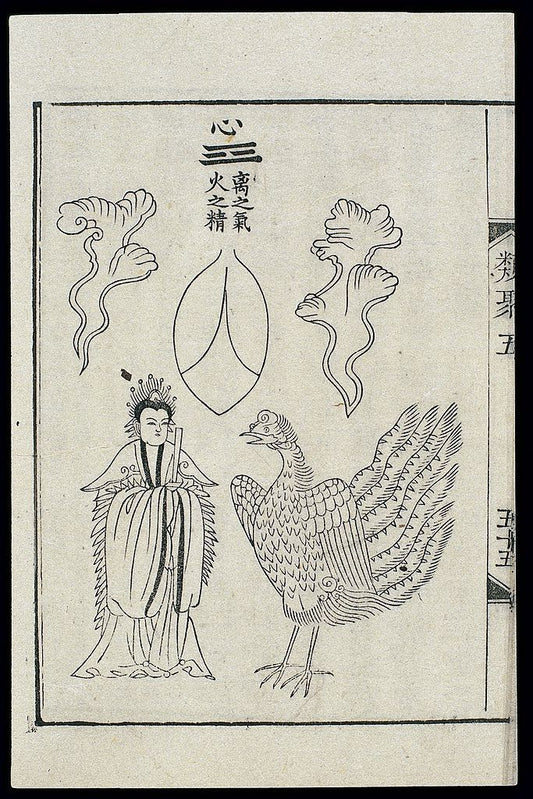 心
離之氣
火之精
類聚 五
五十五